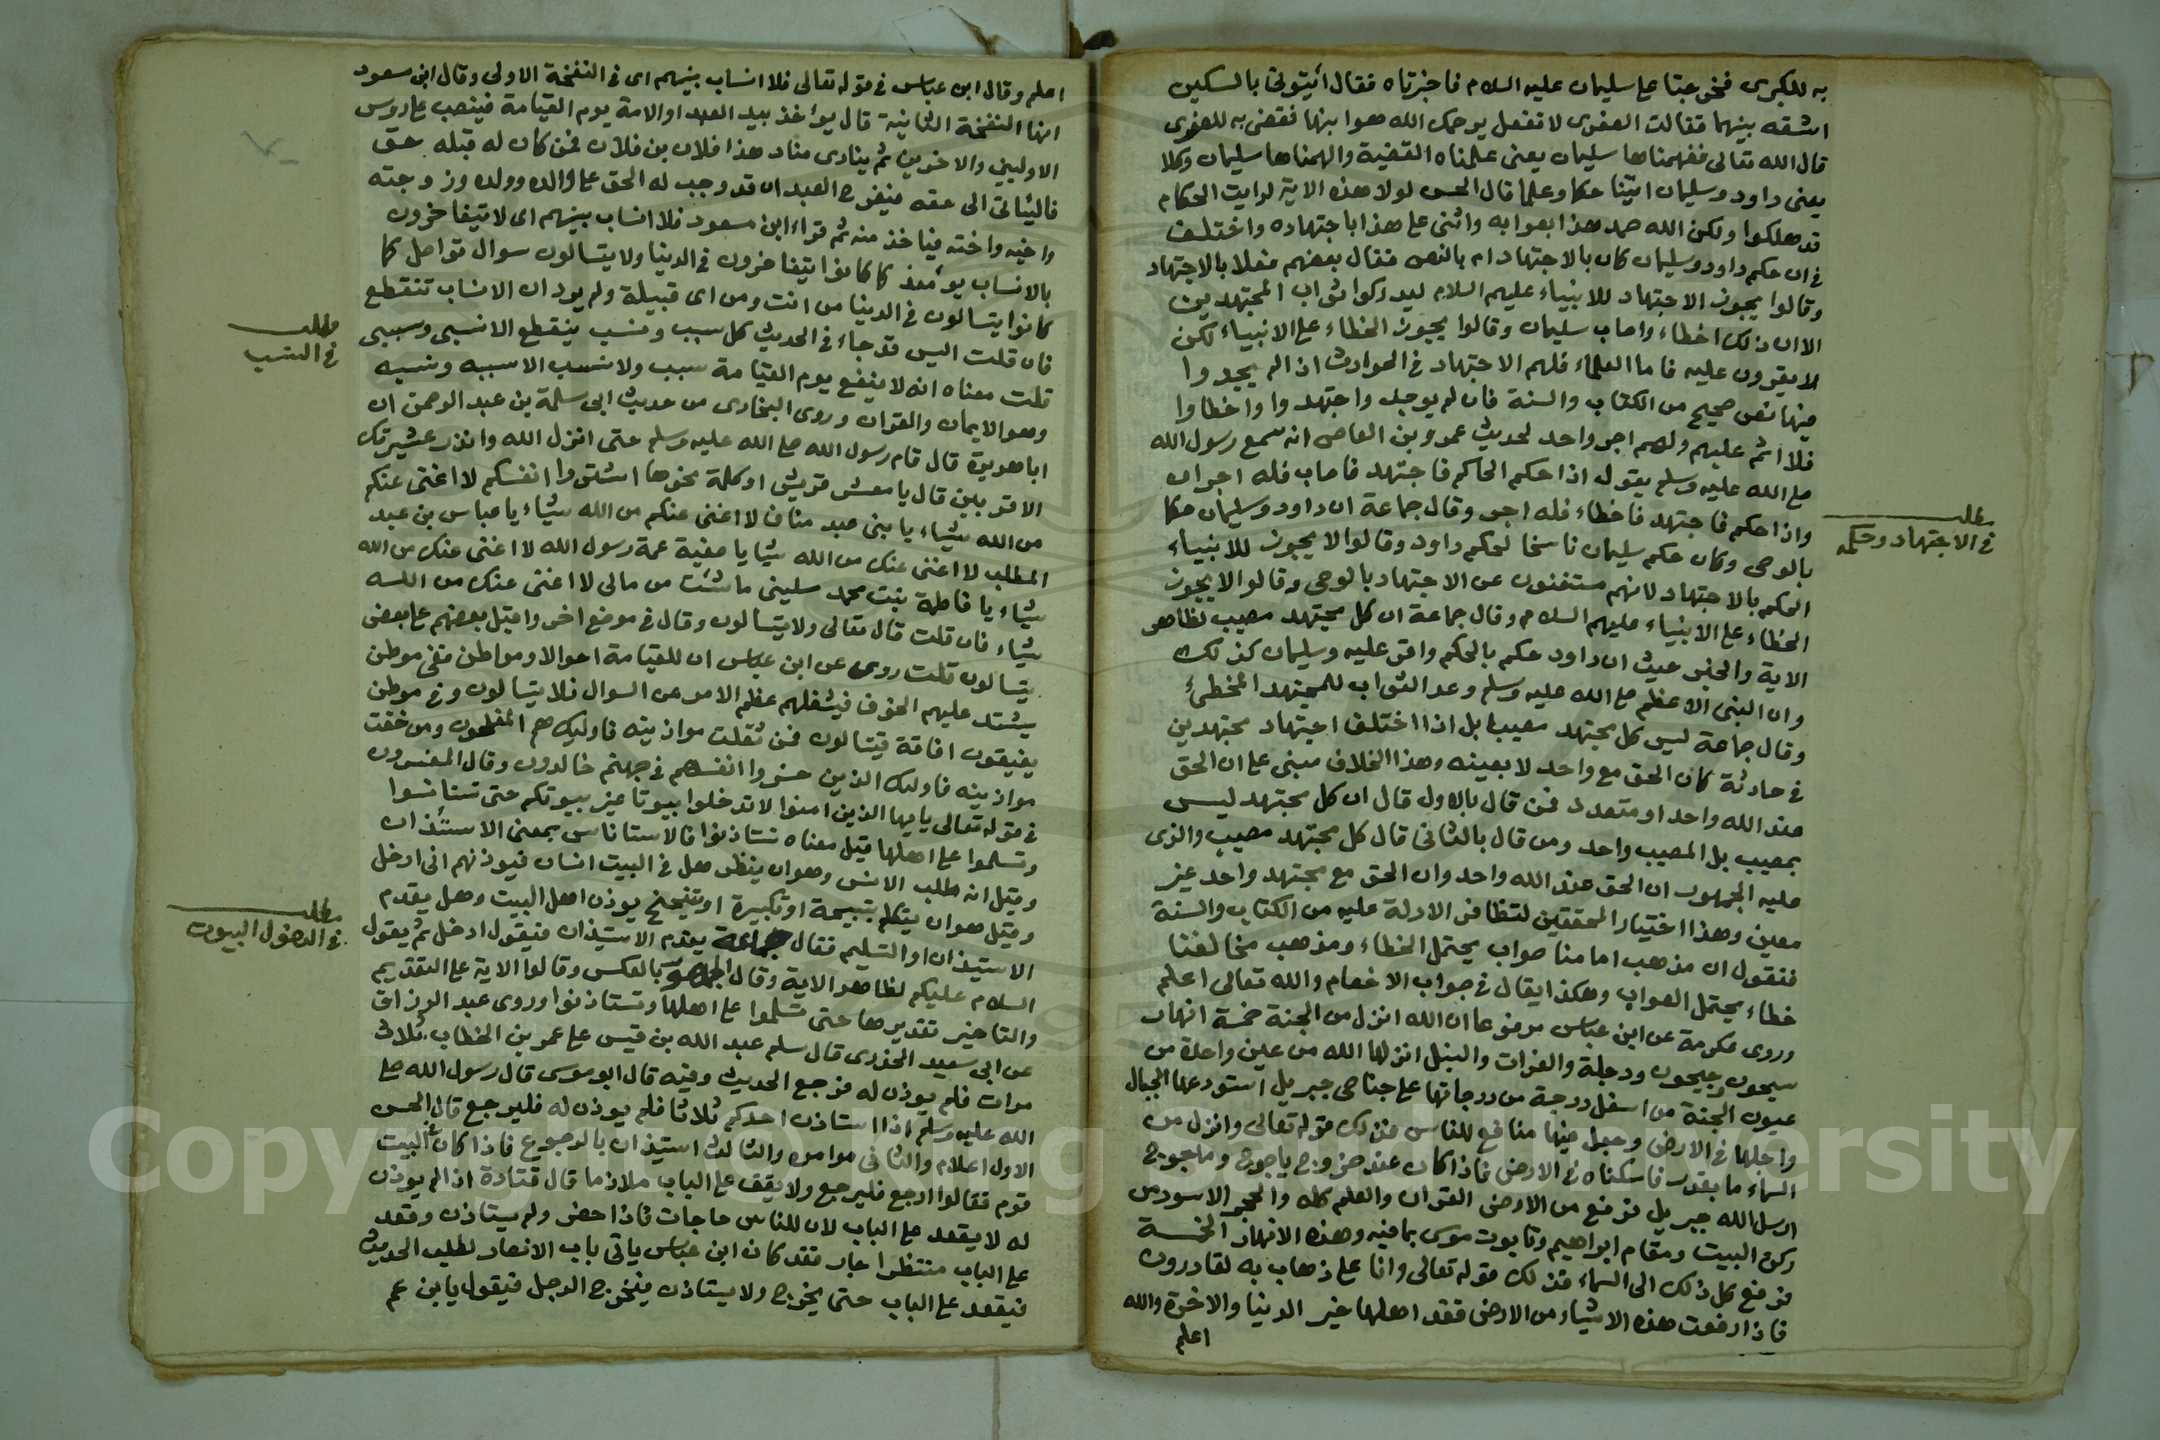 به للكبرى فخرجتا على سليمان عليه السلام فاخبرتاه فقال أيتوني بالسكين
اشقه بينهما فقالت الصغرى لا تفعل يرحمك الله هوا بنها فقضى به للصغرى
قال الله تعالى ففهمناها سليمان يعنى علمناه القضية والهمناها سليمان وكلا
يعنى داود وسليمان اتينا حكما وعلما قال الحسن لولا هذه الاية لرايت الحكام
قد هلكوا ولكن الله حمد هذا بصوابه واثنى على هذا باجتهاده واختلف
في ان حكم داود وسليمان كان بالاجتهاد ام بالنص فقال بعضهم فعلا بالاجتهاد
وقالوا يجوز الاجتهاد للانبياء عليهم السلام ليدركوا ثواب المجتهدين
الا ان داود اخطاء واصاب سليمان وقالوا يجوز الخطاء على الانبياء لكن
لا يقرون عليه فاما العلماء فلهم الاجتهاد في الحوادث اذا لم يجدوا
فيها نص صحيح من الكتاب والسنة فان لم يوجد واجتهدوا واخطاوا
فلا اثم عليهم ولهم اجر واحد لحديث عمرو بن العاص انه سمع رسول الله
صلى الله عليه وسلم يقول اذا حكم الحاكم فاجتهد فاصاب فله اجران
واذا حكم فاجتهد فاخطاء فله اجر وقال جماعة ان داود وسليمان حكما
بالوحى وكان حكم سليمان ناسخا لحكم داود وقالوا لا يجوز للانبياء
الحكم بالاجتهاد لانهم مستغنون عن الاجتهاد بالوحى وقالوا لا يجوز
الخطاء على الانبياء عليهم السلام وقال جماعة ان كل مجتهد مصيب لظاهر
الاية والخبر حيث ان داود حكم بالحكم وافق عليه وسليمان كذلك
وان النبى الاعظم صلى الله عليه وسلم وعد الثواب للمجتهد المخطئ
وقال جماعة ليس كل مجتهد مصيبا بل اذا اختلف اجتهاد مجتهدين
في حادثة كان الحق مع واحد لا بعينه وهذا الخلاف مبنى على ان الحق
عند الله واحد او متعدد فمن قال بالاول قال ان كل مجتهد ليس
بمصيب بل المصيب واحد ومن قال بالثانى قال كل مجتهد مصيب والذى
عليه الجمهور ان الحق عند الله واحد وان الحق مع مجتهد واحد غير
معين وهذا اختيار المحققين لتظافر الادلة عليه من الكتاب والسنة
فنقول ان مذهب امامنا صواب يحتمل الخطاء ومذهب مخالفنا
خطاء يحتمل الصواب وهكذا يقال في جواب الاخصام والله تعالى اعلم
وروى عكرمة عن ابن عباس مرفوعا ان الله انزل من الجنة خمسة انهار
سيحون وجيحون ودجلة والفرات والنيل انزلها الله من عين واحدة من
عيون الجنة من اسفل درجة من درجاتها على جناحى جبريل استودعها الجبال
واجلها في الارض وجعل فيها منافع للناس فذلك قوله تعالى وانزل من
السماء ما بقدر فاسكناه في الارض فاذا كان عند خروج ياجوج وماجوج
ارسل الله جبريل فرفع من الارض القران والعلم كله والحجر الاسود من
ركن البيت ومقام ابراهيم وتابوت موسى بما فيه وهذه الانهار الخمسة
فرفع كل ذلك الى السماء فذلك قوله تعالى وانا على ذهاب به لقادرون
فاذا رفعت هذه الاشياء من الارض فقد اهلها خير الدنيا والاخرة والله
اعلم
مطلب
في الاجتهاد وحكمه
اعلم وقال ابن عباس في قوله تعالى فلا انساب بينهم اى في النفخة الاولى وقال ابن مسعود
انها النفخة الثانية قال يؤخذ بيد العبد او الامة يوم القيامة فينصب على روس
الاولين والاخرين ثم ينادى مناد هذا فلان بن فلان فمن كان له قبله حق
فالياتى الى حقه فيفرح العبد ان قد وجب له الحق على والده وولده وزوجته
واخيه واخته فياخذ منه ثم قراء ابن مسعود فلا انساب بينهم اى لا يتفاخرون
بالانساب يومئذ كما كانوا يتفاخرون في الدنيا ولا يتسالون سوال تواصل كما
كانوا يتسالون في الدنيا من انت ومن اى قبيلة ولم يرد ان الانساب تنقطع
فان قلت اليس قد جاء في الحديث كل سبب ونسب ينقطع الا نسبى وسببى
قلت معناه انه لا ينفع يوم القيامة سبب ولا نسب الا سببه ونسبه
وهو الايمان والقران وروى البخارى من حديث ابى سلمة بن عبد الرحمن ان
ابا هريرة قال قام رسول الله صلى الله عليه وسلم حتى انزل الله وانذر عشيرتك
الاقربين قال يا معشر قريش او كلمة نحوها اشتروا انفسكم لا اغنى عنكم
من الله شياء يا بنى عبد مناف لا اغنى عنكم من الله شياء يا عباس بن عبد
المطلب لا اغنى عنك من الله شيا يا صفية عمة رسول الله لا اغنى عنك من الله
شياء يا فاطمة بنت محمد سلينى ما شئت من مالى لا اغنى عنك من الله
شياء فان قلت قال تعالى ولا يتسالون وقال في موضع اخر واقبل بعضهم على بعض
يتسالون قلت روى عن ابن عباس ان للقيامة احوالا ومواطن ففى موطن
يشتد عليهم الخوف فيشغلهم عظم الامر عن السوال فلا يتسالون وفي موطن
يفيقون افاقة فيتسالون فمن ثقلت موازينه فاوليك هم المفلحون ومن خفت
موازينه فاوليك الذين خسروا انفسهم في جهنم خالدون وقال المفسرون
في قوله تعالى يا يها الذين امنوا لا تدخلوا بيوتا غير بيوتكم حتى تستانسوا
وتسلموا على اهلها قيل معناه تستاذنوا فالاستاناس بمعنى الاستئذان
وقيل انه طلب الانس وهو ان ينظر هل في البيت انسان فيوذنهم انى ادخل
وقيل هو ان يتكلم بتسبيحة او تكبيرة او يتنحنح يوذن اهل البيت وهل يقدم
الاستيذان او التسليم فقال جماعة يقدم الاستيذان فيقول ادخل ثم يقول
السلام عليكم لظاهر الاية وقال الجمهور بالعكس وقالوا الاية على التقديم
والتاخير تقديرها حتى تسلموا على اهلها وتستاذنوا وروى عبد الرزاق
عن ابى سعيد الخدرى قال سلم عبد الله بن قيس على عمر بن الخطاب ثلاث
مرات فلم يوذن له فرجع الحديث وفيه قال ابو موسى قال رسول الله صلى
الله عليه وسلم اذا استاذن احدكم ثلاثا فلم يوذن له فليرجع قال الحسن
الاول اعلام والثانى موامره والثالث استيذان بالرجوع فاذا كان في البيت
قوم فقالوا ارجع فليرجع ولا يقف على الباب ملازما قال قتادة اذا لم يوذن
له لا يقعد على الباب لان للناس حاجات فاذا حضر ولم يستاذن وقعد
على الباب منتظرا جاز فقد كان ابن عباس ياتى باب الانصار لطلب الحديث
فيقعد على الباب حتى يخرج ولا يستاذن فيخرج الرجل فيقول يا بن عم
مطلب
في النسب
مطلب
في الدخول البيوت
Copyright © King Saud University